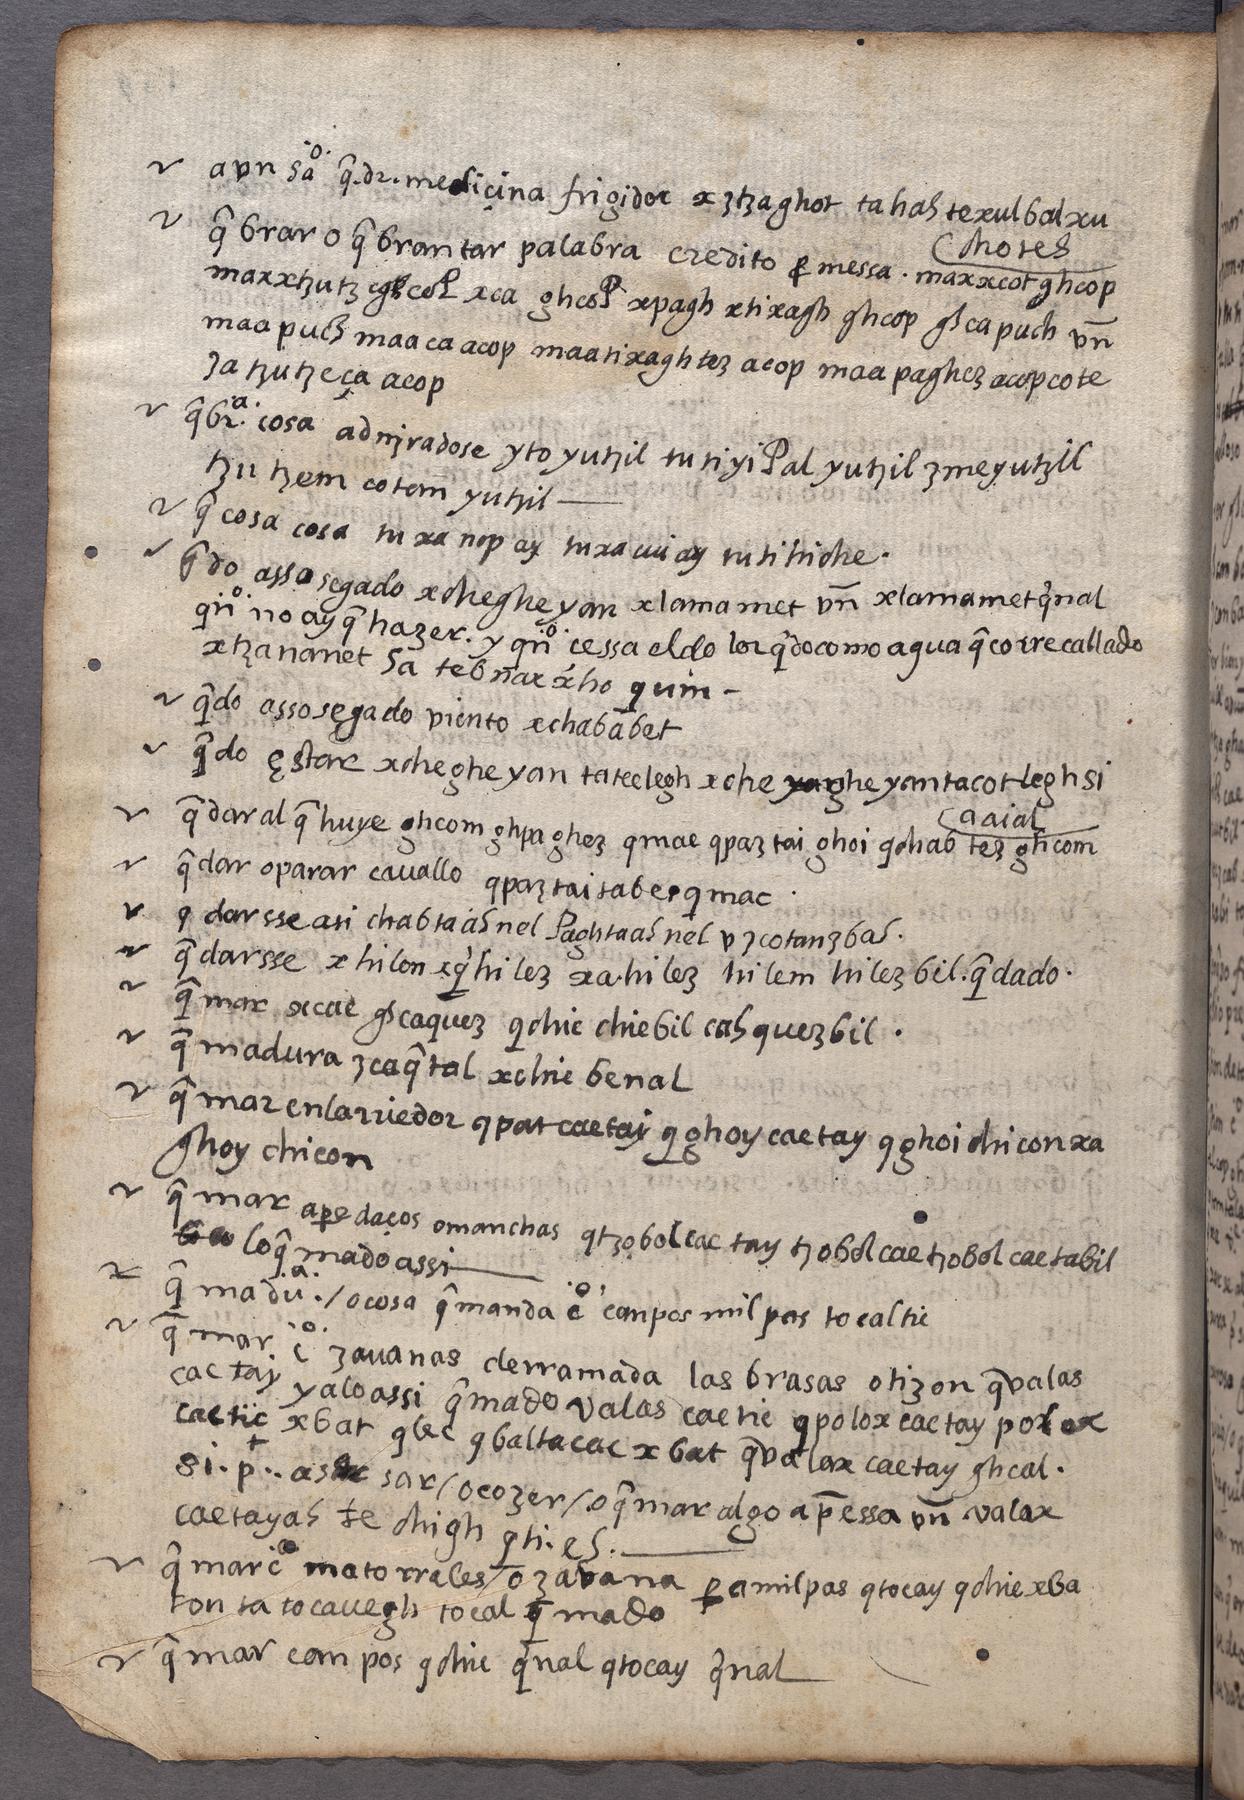 aun sã.º q̃.dr. medicina frigidor xꜩaghot tahaɓ texulbalxu
chotes
q̃brar o q̃brantar palabra credito ꝑmessa . maxxcot ghcop
maxxꜩutꜩ ghcop xca ghcop xpagh xtixagh ghcop ghcapuch vñ
maapuch maacaacop maatixaghtez acop maapaghez acopcote
ꜩutꜩeça acop
q̃br.ª cosa admjradose yto yutꜩil tutiyipal yutꜩil zmeyutꜩil
ꜩu ꜩem cotem yutꜩil
q̃ cosa cosa tuxanop ay tuxa uii ay tutihiche.
q̃do assosegado xchegheyan xlamamet vñ xlamametq̃nal
qñ.º no ay q̃ hazer. y qñ.º cessa el dolor q̃do como agua q̃ corre callado
xꜩananet quin -
q̃do assosegado viento xchabãbet
q̃do estar xchegheyan tateelegh xche gheyantacotleghsi
aaial
q̃dar al q̃ huye ghcom ghpaghez qmac qpaztai ghoi qchab tez ghcom
q̃dar o parar cauallo qpaztaitabe qmac .
q darsse asi chabtaasnel paghtaasnel vzcotanzbas.
q̃darsse xhilon xq̃hilez xahilez hilem hilezbil. q̃dado.
q̃mar xcac ghcaquez qchic chiebil cahquezbil .
q̃madura zcaq̃tal xchie benal
q̃mar enlarriedor qpat caetay qghoy caetay qghoi chiconxa
ghoy chicon
q̃mar apedaços omanchas qꜩobolcac tay ꜩobol cae ꜩobol caetabil
loq̃mado assi
q̃madu.ª / o cosa q̃manda c.º canpos milpas tocaltic
q̃mar. c.º zauanas derramada las brasas o tizon q̃valas
cactay yalo assi q̃mado valas caetic qpolox caetay polox
caetic xbat qlec qbaltacac xbat q̃valax caetay ghcal.
si. p. assar / o cozer / o q̃mar algo ap̃essa vñ valax
caetayas te chigh
q̃mar c.º matorrales / o zavana ꝑa milpas qtocay qchie xba
ton ta tocauegh tocal q̃mado
q̃mar campos qchic q̃nal qtocay q̃nal